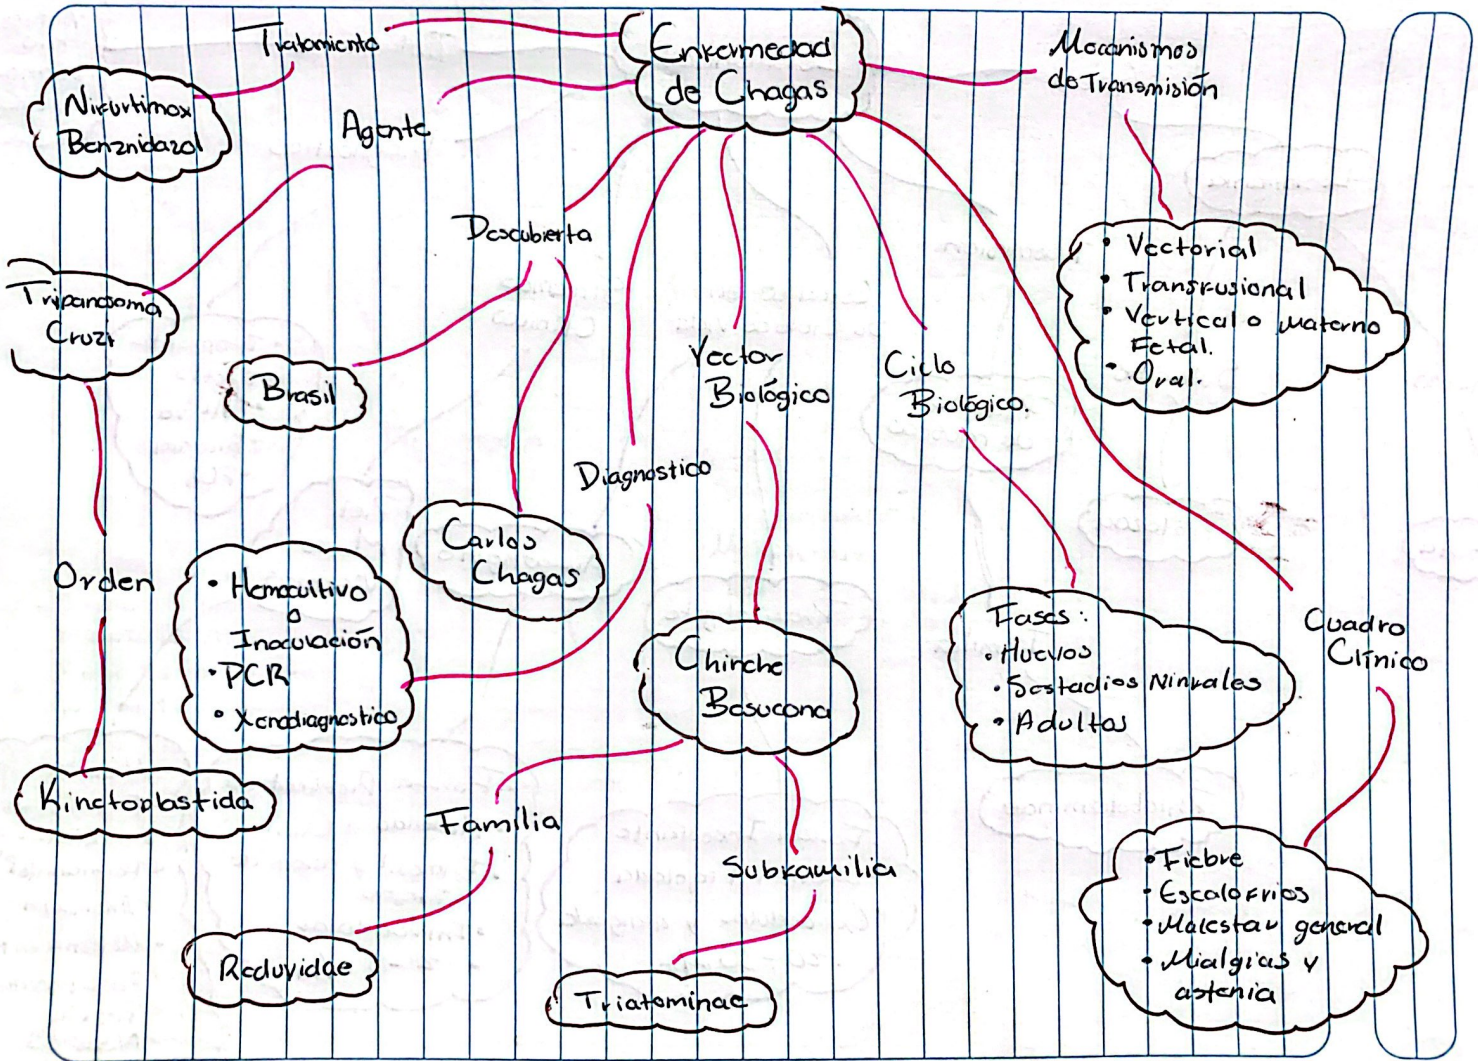 Enfermedad
de Chagas
Tratamiento
Nifurtimox
Benznidazol
Agente
Tripanosoma
Cruzi
Orden
Kinetoplastida
Descubierta
Brasil
Carlos
Chagas
Diagnostico
• Hemocultivo
o
Inoculación
• PCR
• Xenodiagnostico
Vector
Biológico
Chinche
Besucona
Familia
Reduvidae
Subfamilia
Triatominae
Ciclo
Biológico.
Fases:
• Huevos
• 5 estadios Ninfales
• Adultos
Mecanismos
de Transmisión
• Vectorial
• Transfusional
• Vertical o Materno
Fetal.
• Oral.
Cuadro
Clínico
• Fiebre
• Escalofrios
• Malestar general
• Mialgias y
astenia